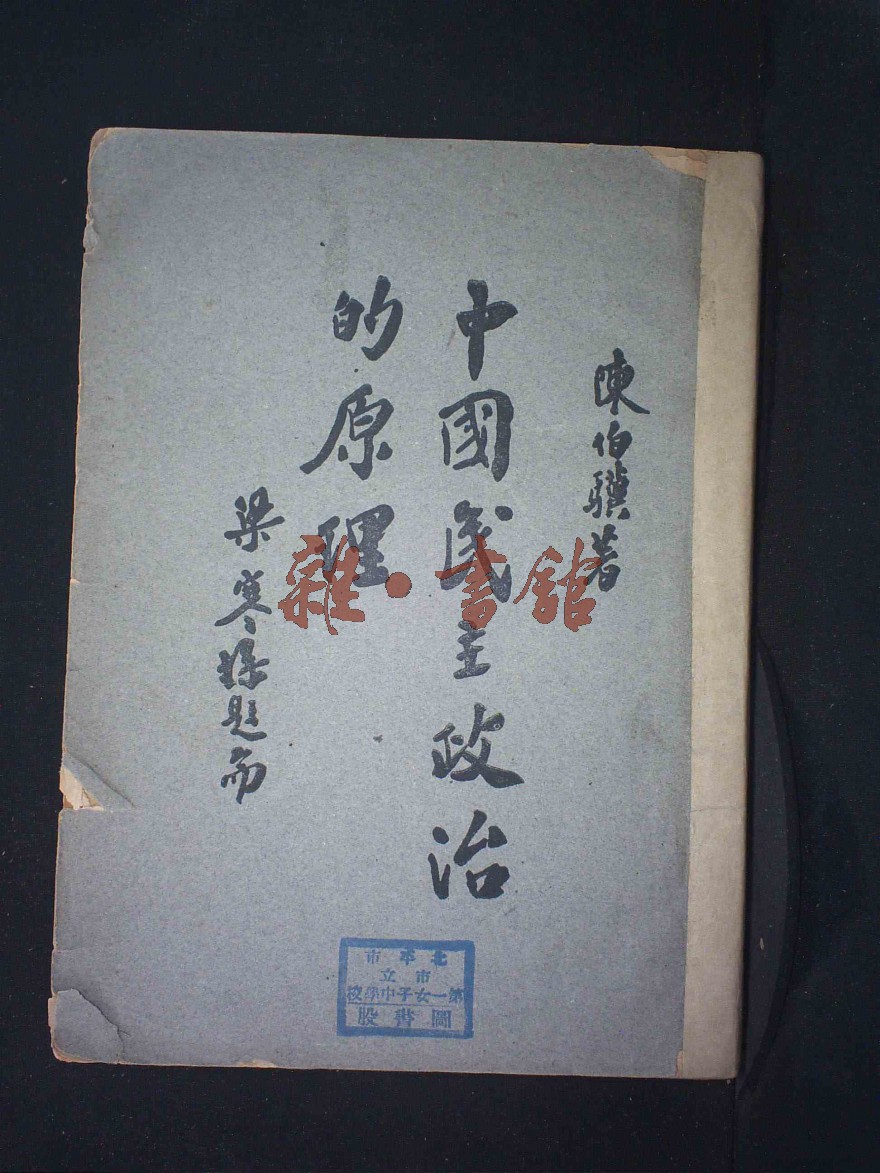 陳伯驥著
中國民主政治
的原理
梁寒操題耑
雜·書館
北平市
市立
第一女子中學校
圖書股